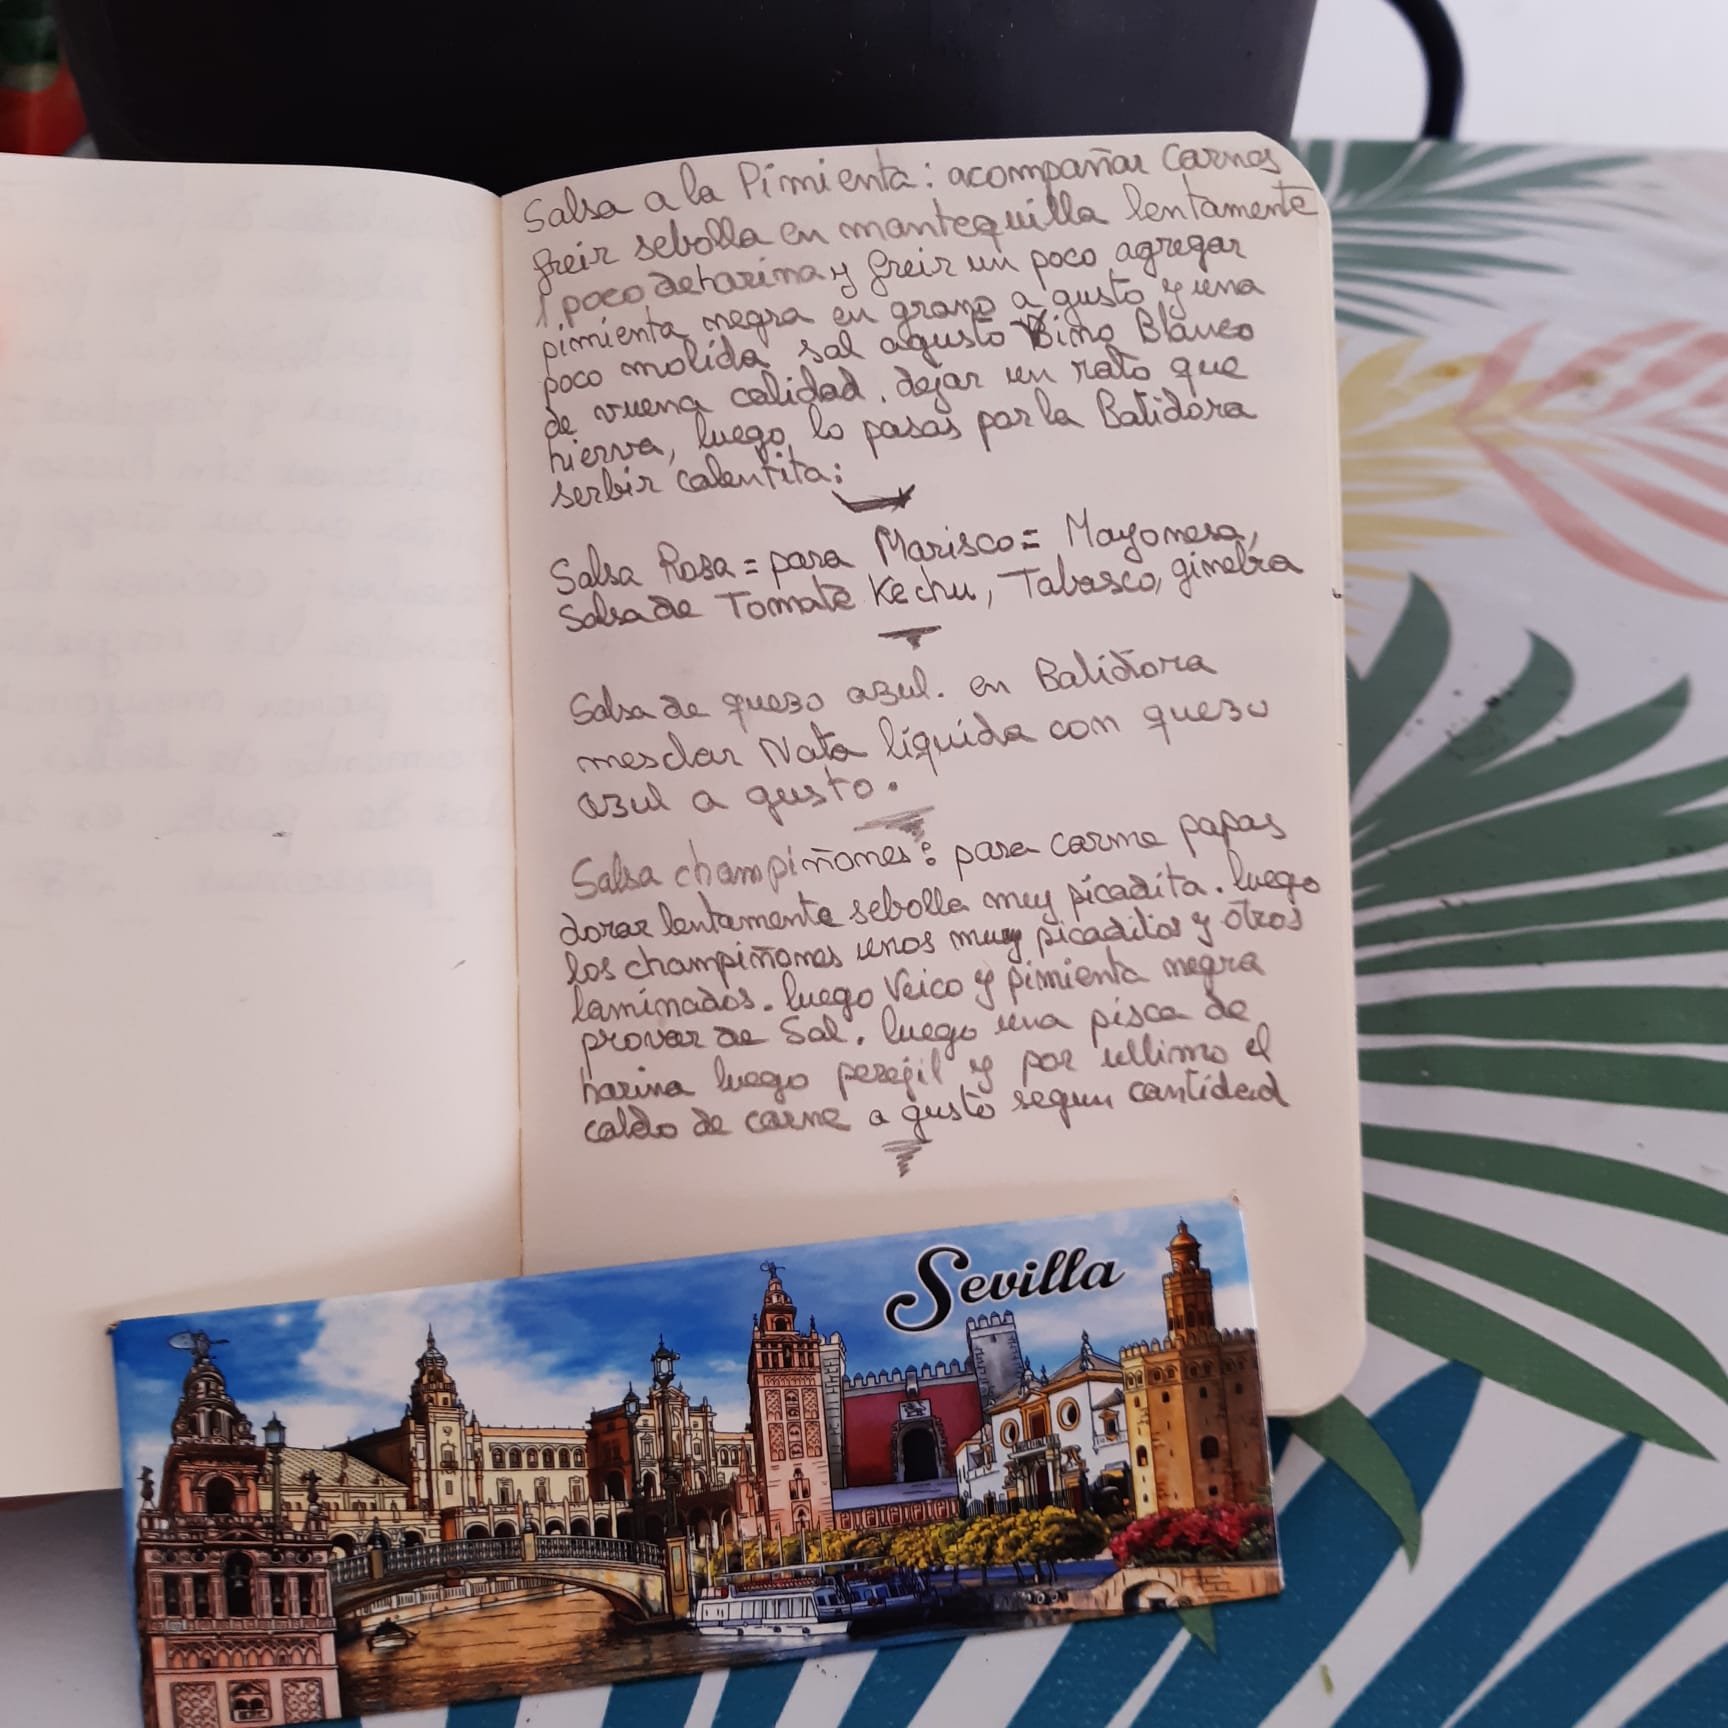 Salsa a la Pimienta: acompañar Carnes
freir sebolla en mantequilla lentamente
1 poco de harina y freir un poco agregar
pimienta negra en grano a gusto y una
poco molida sal agusto Bino Blanco
de vuena calidad. dejar un rato que
hierva, luego lo pasas por la Batidora
serbir calentita:
Salsa Rosa = para Marisco = Mayonesa,
Salsa de Tomate Kechu, Tabasco, ginebra
Salsa de quezo azul. en Batidora
mesclar Nata líquida con quezo
azul a gusto.
Salsa champiñones: para carne papas
dorar lentamente sebolla muy picadita. luego
los champiñones unos muy picaditos y otros
laminados. luego y pimienta negra
provar de Sal. luego una pisca de
harina luego perejil y por ultimo el
caldo de carne a gusto segun cantidad
Sevilla